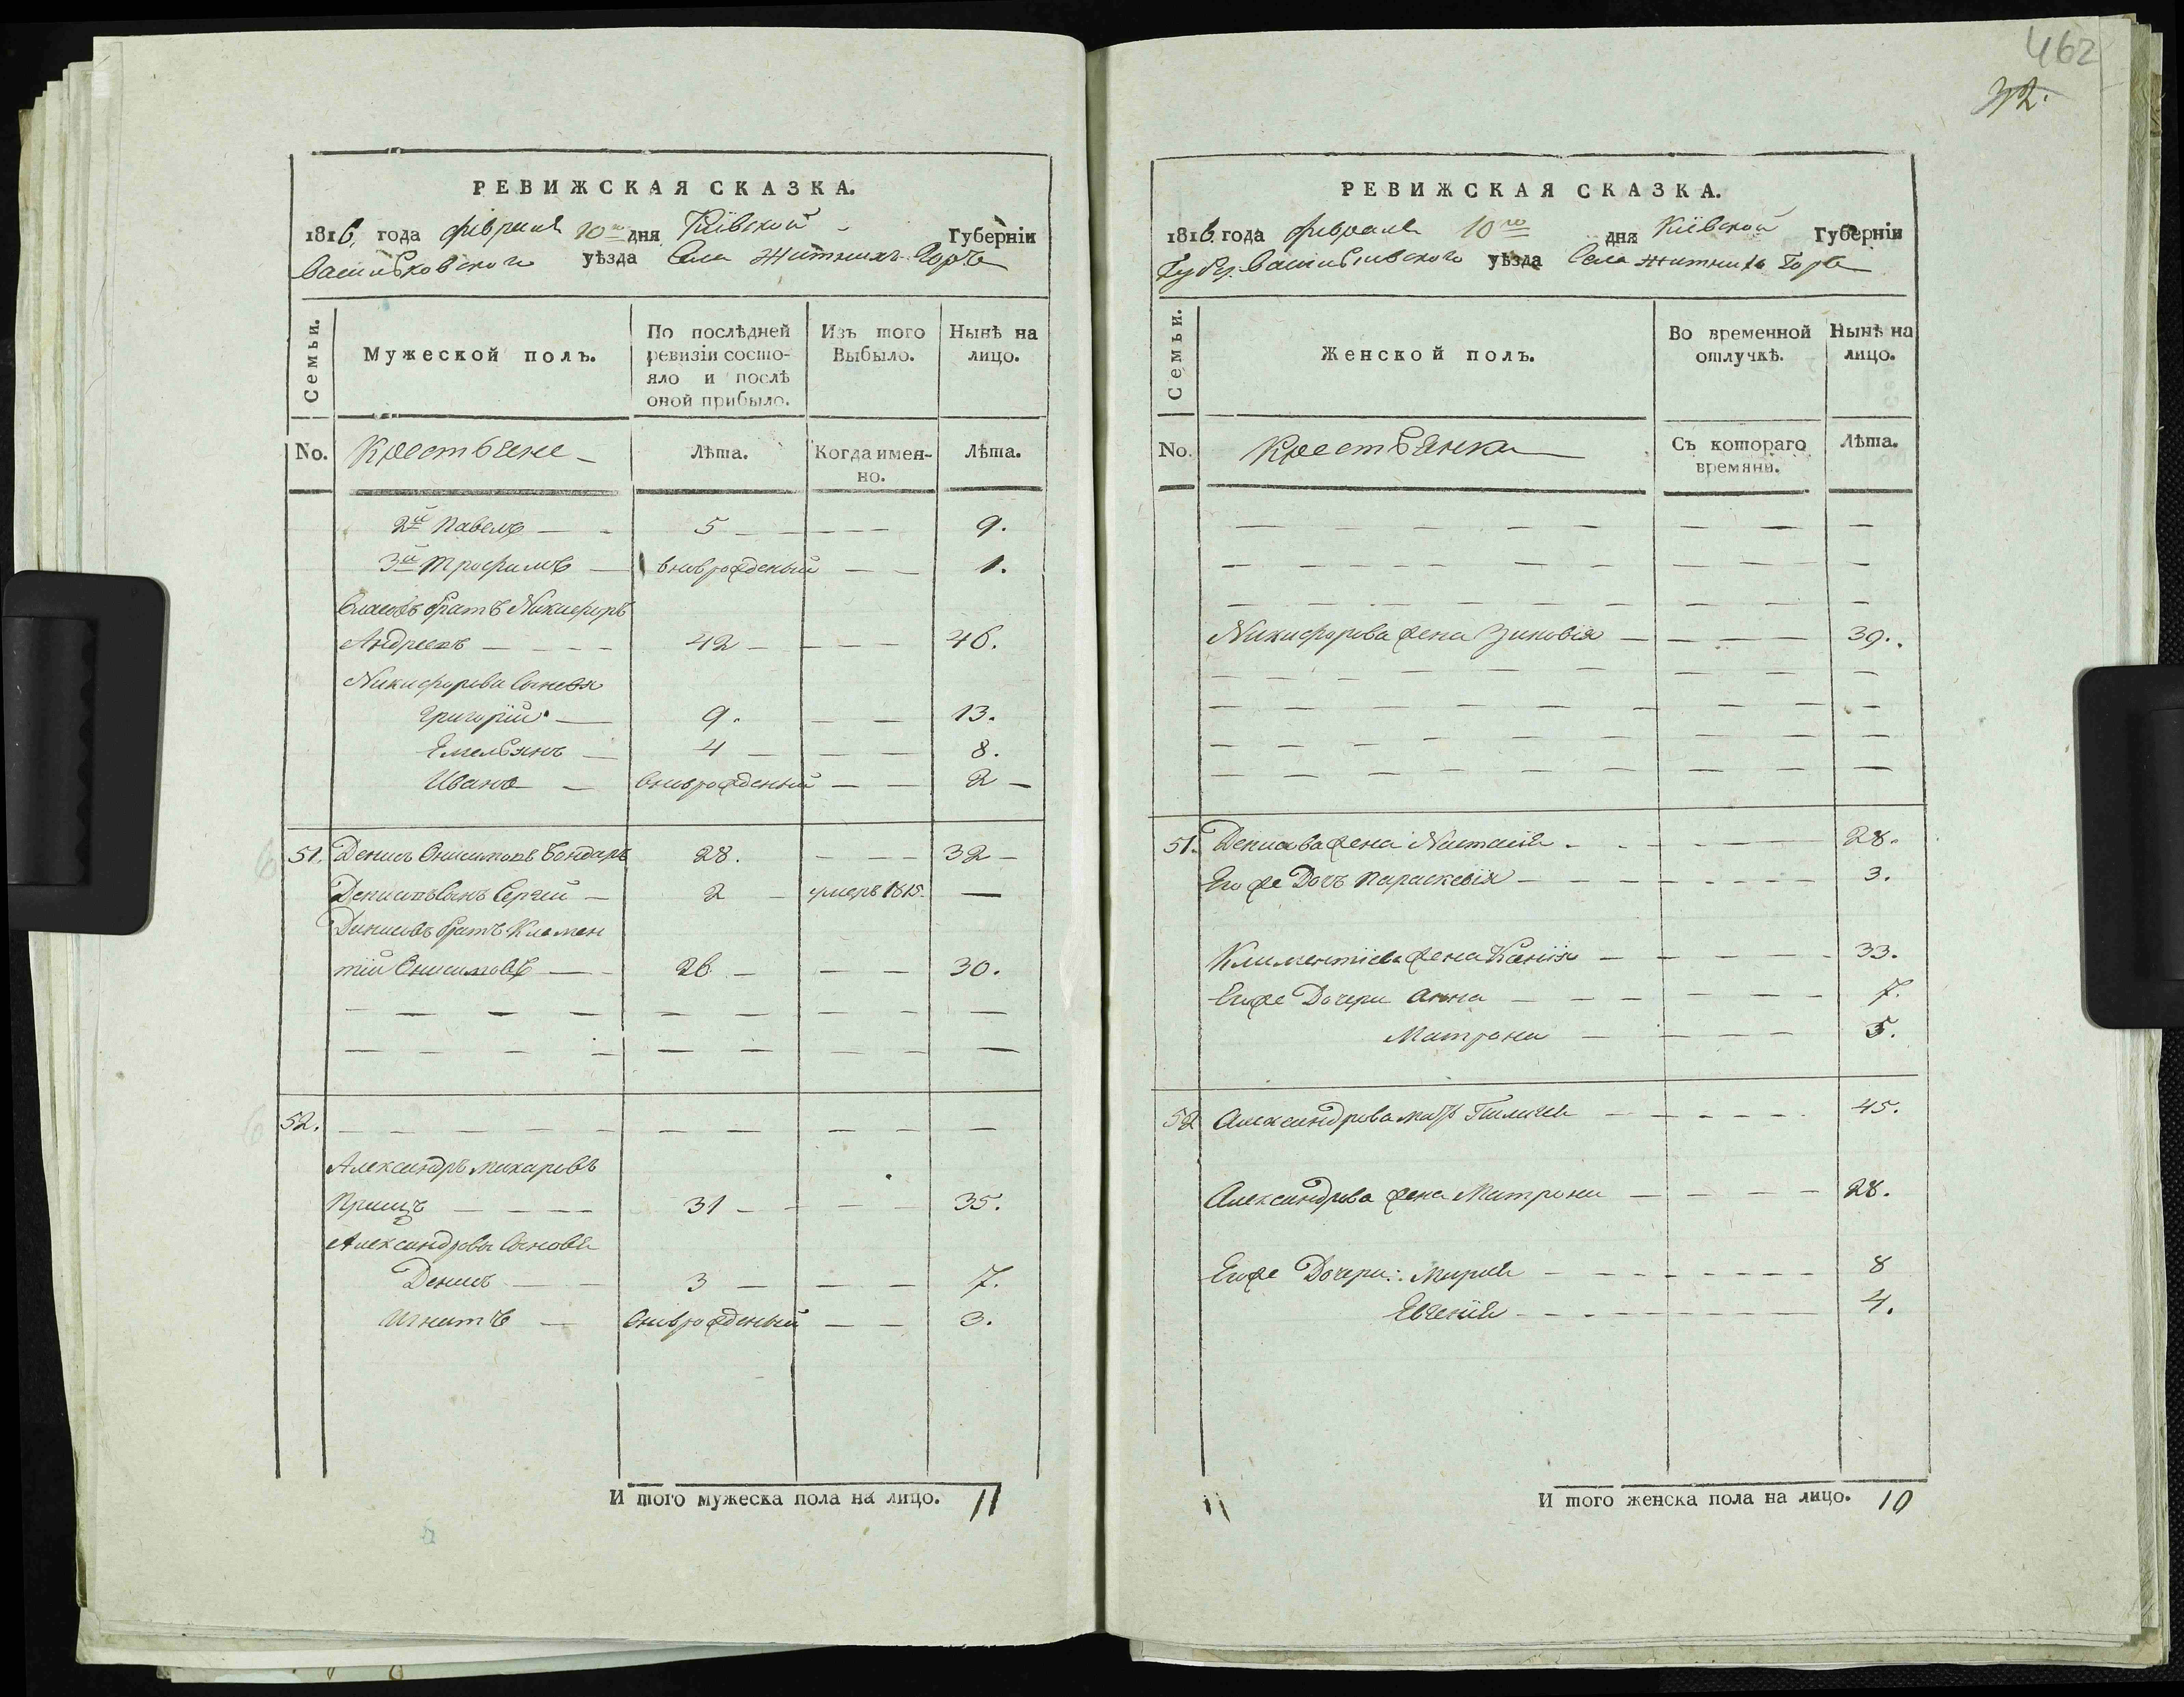 462
32.
РЕВИЖСКАЯ СКАЗКА.
1816, года февраля 10го дня Кіевской Губерніи
Васильковского уѣзда Села Житнихъ Горъ
Семьи.
Мужеской полъ.
По послѣдней ревизіи состояло и послѣ оной прибыло.
Изъ того Выбыло.
Нынѣ на лицо.
No. Крестьяне Лѣта. Когда именно. Лѣта.
2й Павелъ — 5 — — — 9.
3й Трофимъ — вновьрожденый — — 1.
братъ Никифоръ
Андреевъ — — — 42 — — — — 46.
Никифорова Сыновя
Григорій — 9. — — 13.
Емельянъ — 4 — — — 8.
Иванъ — вновьрожденый — — 2 —
51. Денисъ Онисимовъ Бондаръ 28. — — — 32 —
Денисовъ Сынъ Сергей — 2 — умеръ 1815. —
Денисовъ братъ Климен
тій Онисимовъ — — 26 — — — 30.
— — — — — — — — — —
— — — — — — — — — —
52. — — — — — — — — — —
Александръ Макаровъ
— — — — 31 — — — — 35.
Александровы Сыновя
Денисъ — — 3 — — — 7.
Игнатъ — вновьрожденый — — 3.
И того мужеска пола на лицо. 11
РЕВИЖСКАЯ СКАЗКА.
1816. года февраля 10го дня Кіевской Губерніи
Губер. Васильковского уѣзда Села Житнихъ Горъ
Семьи.
Женской полъ.
Во временной отлучкѣ.
Нынѣ на лицо.
No. Крестьянки Съ котораго времяни. Лѣта.
— — — — — — — — — —
— — — — — — — — — —
— — — — — — — — — —
Никифорова жена Зиновія — — — — — 39.
— — — — — — — — — —
— — — — — — — — — —
— — — — — — — — — —
— — — — — — — — — —
51. Денисова жена Настасія — — — — 28.
Его же Дочь Параскевія — — — — — — 3.
Климентіева жена Ксенія — — — — — 33.
Его же Дочери Анна — — — — — — 7.
Матрона — — — — 5.
52 Александрова мать — — — — — 45.
Александрова жена Матрона — — — — — 28.
Его же Дочери: Марія — — — — — — 8
Евгенія — — — — — — 4.
11
И того женска пола на лицо. 10